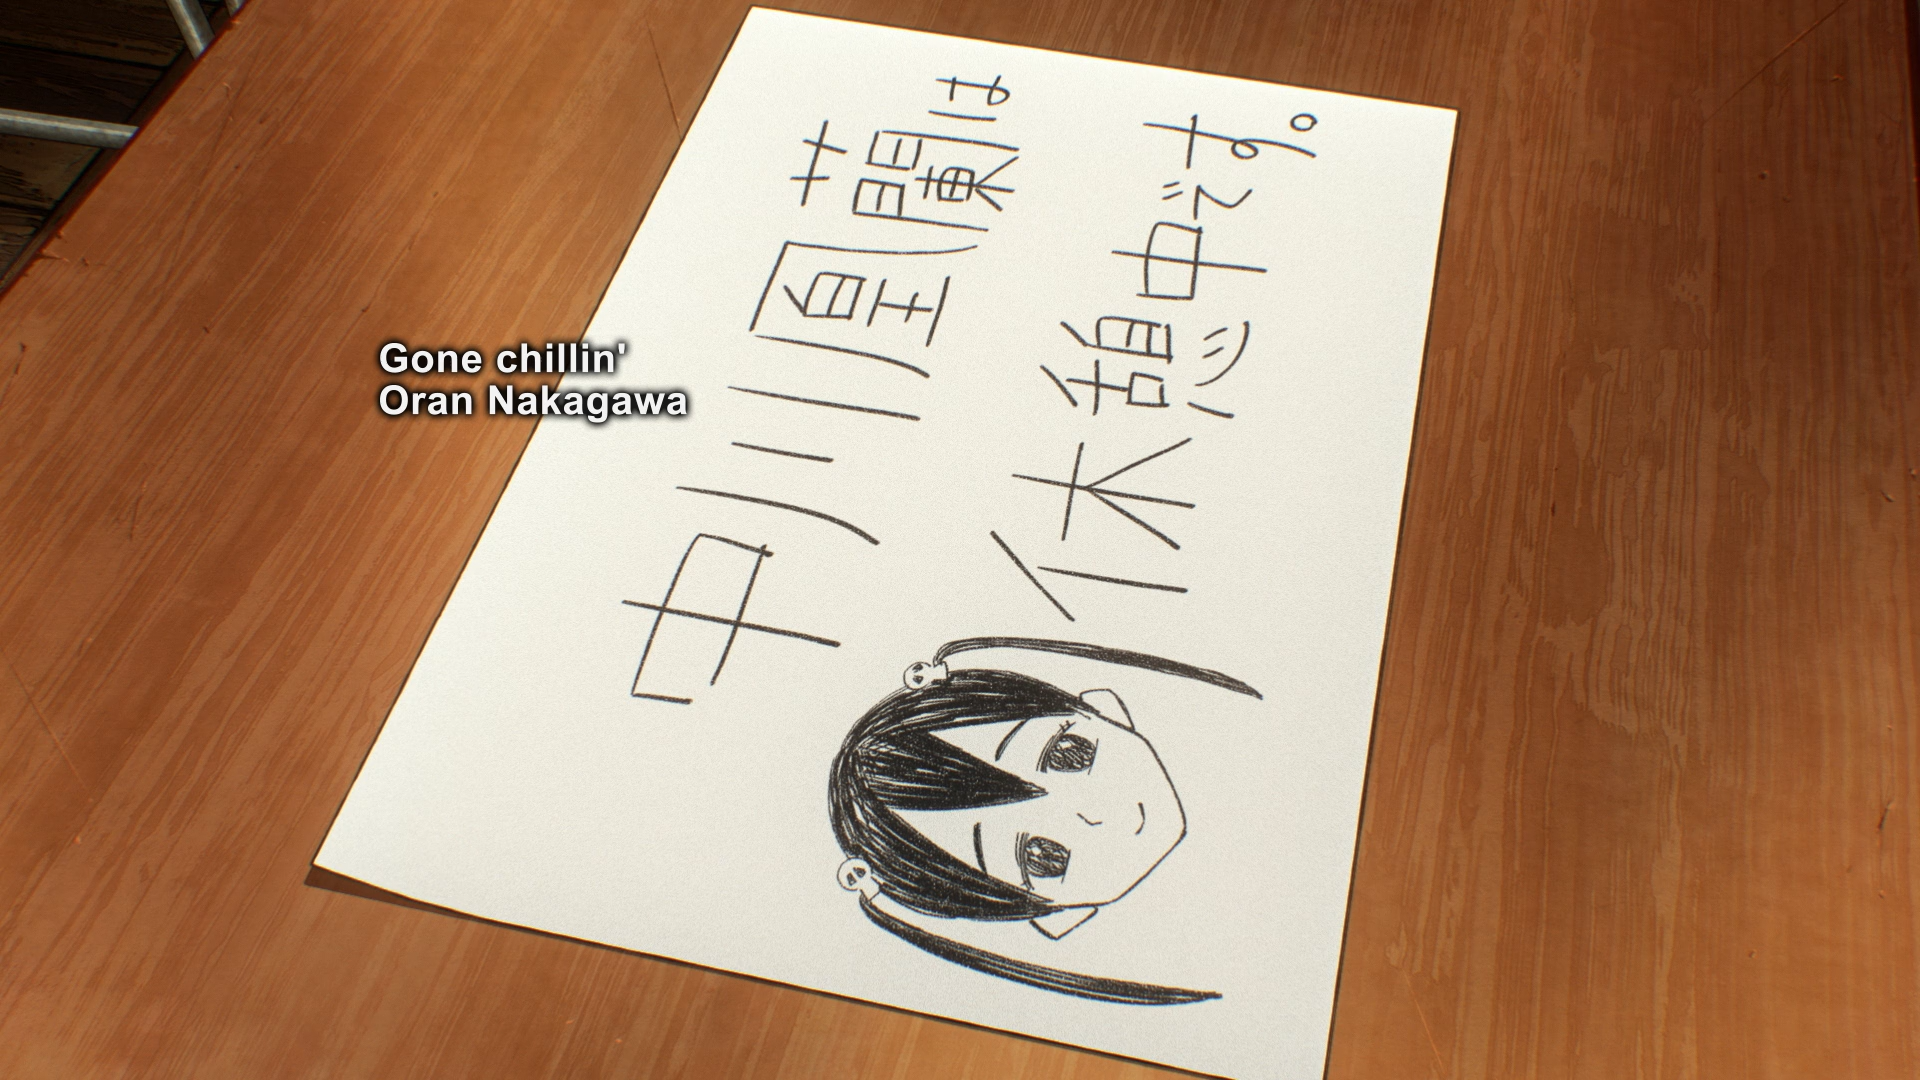 中川凰蘭は
休憩中です。
Gone chillin'
Oran Nakagawa